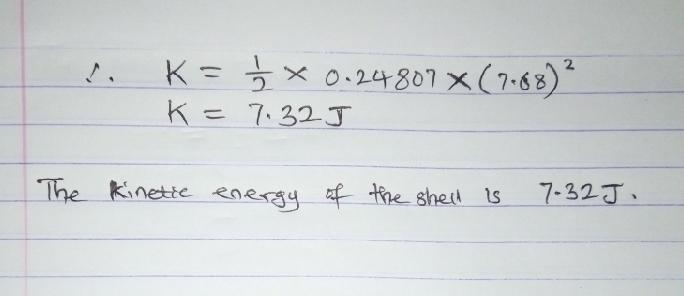 ∴ K = 1/2 × 0.24807 × (7.68)²
K = 7.32 J
The Kinetic energy of the shell is 7.32 J.